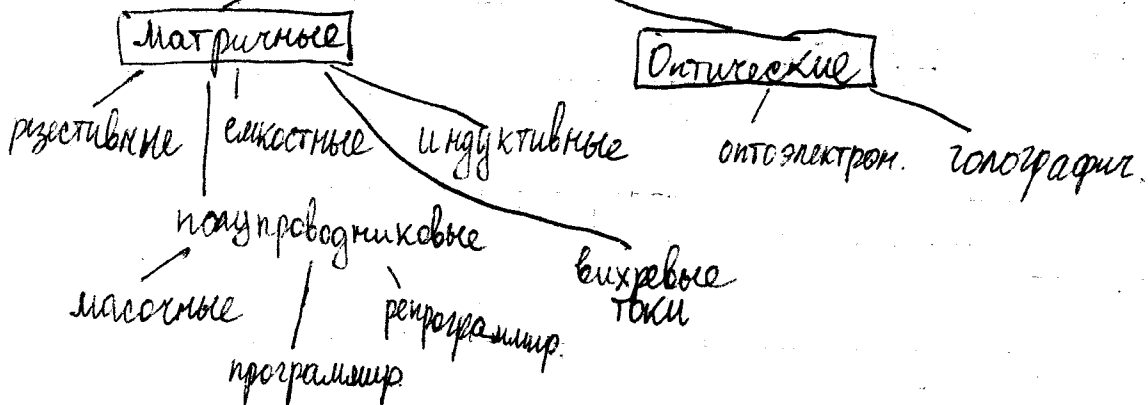 Матричные
Оптические
резестивные емкостные индуктивные
оптоэлектрон. голографич.
полупроводниковые
вихревые
токи
масочные
репрограммир.
программир.